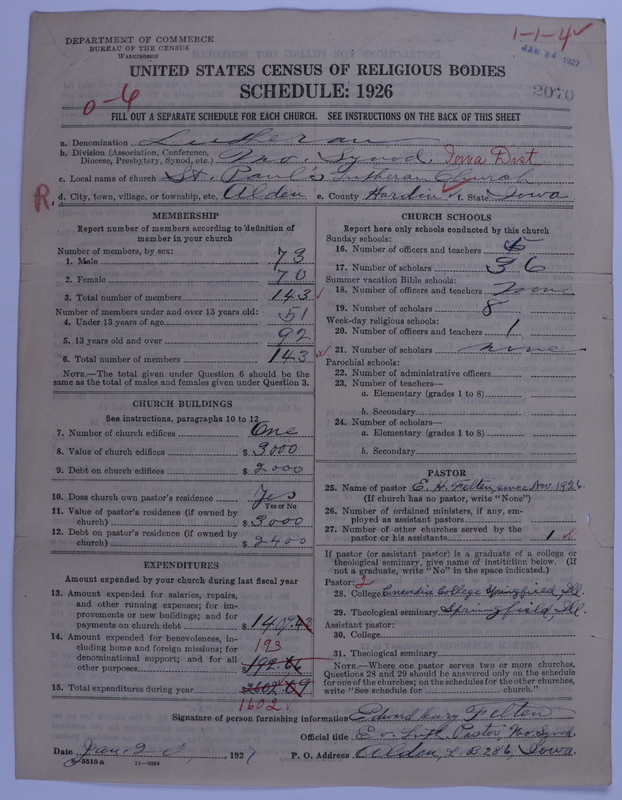 DEPARTMENT OF COMMERCE
BUREAU OF THE CENSUS
WASHINGTON
1-1-4
JAN 24 1927
UNITED STATES CENSUS OF RELIGIOUS BODIES
SCHEDULE: 1926
2070
0-6
FILL OUT A SEPARATE SCHEDULE FOR EACH CHURCH. SEE INSTRUCTIONS ON THE BACK OF THIS SHEET
a. Denomination Lutheran
b. Division (Association, Conference, Diocese, Presbytery, Synod, etc.) Mo. Synod. Iowa Dist
c. Local name of church St. Paul's Lutheran Church
R, d. City, town, village, or township, etc. Alden e. County Hardin f. State Iowa
MEMBERSHIP
Report number of members according to definition of
member in your church
Number of members, by sex:
1. Male 73
2. Female 70
3. Total number of members 143
Number of members under and over 13 years old:
4. Under 13 years of age 51
5. 13 years old and over 92
6. Total number of members 143
NOTE.—The total given under Question 6 should be the
same as the total of males and females given under Question 3.
CHURCH BUILDINGS
See instructions, paragraphs 10 to 12
7. Number of church edifices One
8. Value of church edifices $ 3000
9. Debt on church edifices $ 2000
10. Does church own pastor's residence Yes
Yes or No
11. Value of pastor's residence (if owned by
church) $ 3000
12. Debt on pastor's residence (if owned by
church) $ 2400
EXPENDITURES
Amount expended by your church during last fiscal year
13. Amount expended for salaries, repairs,
and other running expenses; for im-
provements or new buildings; and for
payments on church debt $ 1409.43
14. Amount expended for benevolences, in-
cluding home and foreign missions; for
denominational support; and for all
other purposes 193
15. Total expenditures during year 1602.09
1602
CHURCH SCHOOLS
Report here only schools conducted by this church
Sunday schools:
16. Number of officers and teachers 5
17. Number of scholars 36
Summer vacation Bible schools:
18. Number of officers and teachers none
19. Number of scholars 8
Week-day religious schools:
20. Number of officers and teachers 1
21. Number of scholars none
Parochial schools:
22. Number of administrative officers
23. Number of teachers—
a. Elementary (grades 1 to 8)
b. Secondary
24. Number of scholars—
a. Elementary (grades 1 to 8)
b. Secondary
PASTOR
25. Name of pastor E. H. Felten, since Nov. 1926
(If church has no pastor, write "None")
26. Number of ordained ministers, if any, em-
ployed as assistant pastors
27. Number of other churches served by the
pastor or his assistants 1
If pastor (or assistant pastor) is a graduate of a college or
theological seminary, give name of institution below. (If
not a graduate, write "No" in the space indicated.)
Pastor: 2
28. College Concordia College Springfield, Ill.
29. Theological seminary Springfield, Ill
Assistant pastor:
30. College
31. Theological seminary
NOTE.—Where one pastor serves two or more churches,
Questions 28 and 29 should be answered only on the schedule
for one of the churches; on the schedules for the other churches,
write "See schedule for church."
Signature of person furnishing information Edward Henry Felten
Official title Ev. Luth. Pastor, Mo. Synod
Date Jan. 1927 P. O. Address Alden, L. B. 286, Iowa.
8—5519a 11—9084